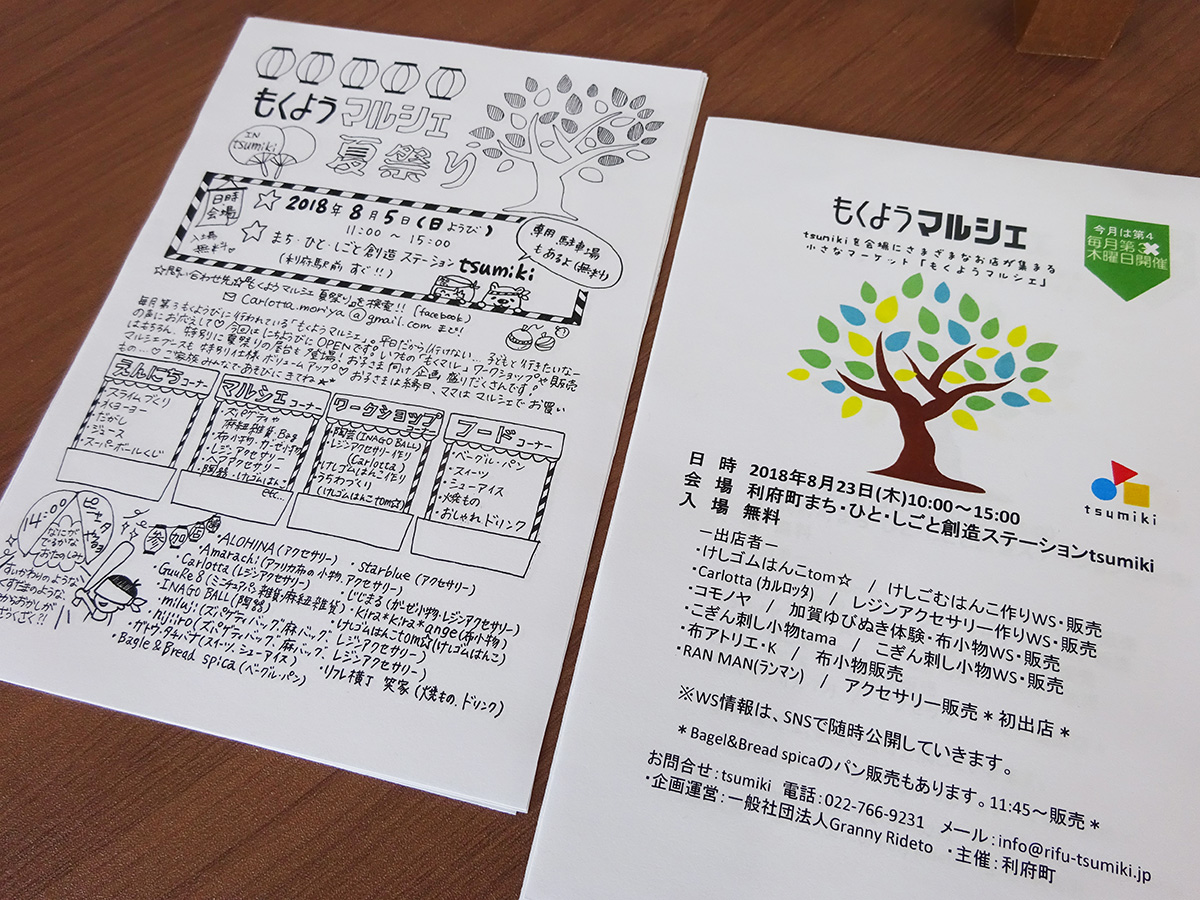 もくようマルシェ
IN
tsumiki
夏祭り
日時
会場
☆ 2018年8月5日(日ようび)
11:00〜15:00
入場
無料
☆ まち・ひと・しごと創造ステーション tsumiki
(利府駅前 すぐ!!)
専用駐車場
もあるよ(無料)
☆問い合わせ先☆『もくようマルシェ 夏祭り』を検索!! [facebook]
✉ Carlotta.moriya@gmail.com まで!
毎月第3もくようびに行われている「もくようマルシェ」。平日だから行けない… 子どもと行きたいなー
の声にお応えして♡今回はにちようびにOPENです。いつもの「もくマル」ワークショップや販売
はもちろん、特別に夏祭りの屋台も登場!お子さま向け企画盛りだくさんです。
マルシェブースも特別仕様、ボリュームアップ♡お子さまは縁日、ママはマルシェでお買い
もの…♡ご家族みんなであそびにきてね★
えんにちコーナー
・スライムづくり
・水ヨーヨー
・だがし
・ジュース
・スーパーボールくじ
マルシェコーナー
・ズパゲティや
麻紐雑貨、Bag
・布小物・ガーゼ小物
・レジンアクセサリー
・ヘアアクセサリー
・陶器・けしゴムはんこ
etc...
ワークショップコーナー
・陶芸(INAGO BALL)
・レジンアクセサリー作り
(Carlotta)
・けしゴムはんこ作り
・うちわづくり
(けしゴムはんこtom☆)
フードコーナー
・ベーグル・パン
・スイーツ
・シューアイス
・焼もの
・おしゃれドリンク
14:00
ピニャータ
やるよ
なにが
でるかな
おたのしみ
すいかわりのような、
くす玉のような、
中からおかしが
ざっくざく?!
参加店舗
・ALOHINA(アクセサリー)
・starblue(アクセサリー)
・Amarachi(アフリカ布の小物、アクセサリー)
・Carlotta(レジンアクセサリー)
・じじまる(ガーゼ小物・レジンアクセサリー)
・Guuke8(ミニチュアパン雑貨・麻紐雑貨)
・Kira*Kira*ange(布小物)
・INAGO BALL(陶器)
・けしゴムはんこtom☆(けしゴムはんこ)
・miluji(ズパゲティバッグ、麻バッグ、レジンアクセサリー)
・ガトウ・タチバナ(スイーツ、シューアイス)
・Bagle & Bread spica(ベーグル・パン)
・リフレ横丁 笑家(焼もの、ドリンク)
もくようマルシェ
tsumikiを会場にさまざまなお店が集まる
小さなマーケット「もくようマルシェ」
今月は第4
毎月第3
木曜日開催
tsumiki
日 時 2018年8月23日(木)10:00〜15:00
会 場 利府町まち・ひと・しごと創造ステーションtsumiki
入 場 無料
―出店者―
・けしゴムはんこtom☆ / けしごむはんこ作りWS・販売
・Carlotta(カルロッタ) / レジンアクセサリー作りWS・販売
・コモノヤ / 加賀ゆびぬき体験・布小物WS・販売
・こぎん刺し小物tama / こぎん刺し小物WS・販売
・布アトリエ・K / 布小物販売
・RAN MAN(ランマン) / アクセサリー販売 * 初出店 *
※WS情報は、SNSで随時公開していきます。
* Bagel&Bread spicaのパン販売もあります。11:45〜販売 *
お問合せ:tsumiki 電話:022-766-9231 メール:info@rifu-tsumiki.jp
・企画運営:一般社団法人Granny Rideto ・主催:利府町